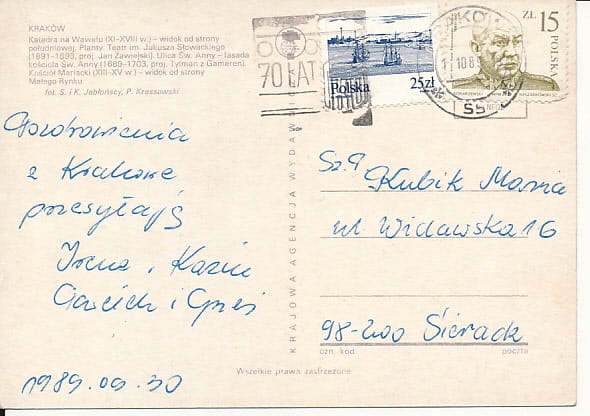 KRAKÓW
Katedra na Wawelu (XI-XVIII w.) – widok od strony
południowej. Planty. Teatr im. Juliusza Słowackiego
(1891-1893, proj. Jan Zawiejski). Ulica Św. Anny – fasada
kościoła Św. Anny (1689-1703, proj. Tylman z Gameren).
Kościół Mariacki (XIII-XV w.) – widok od strony
Małego Rynku
fot. S. i K. Jabłońscy, P. Krassowski
70 LAT
Polska
25zł
ZŁ 15
POLSKA
Pozdrowienia
z Krakowa
przesyłają
Irena i Kazik
i Grześ
1989.09.30
KRAJOWA AGENCJA WYDAWNI
Kubik Maria
ul. Widawska 16
98-200 Sieradz
ozn. kod
poczta
Wszelkie prawa zastrzeżone